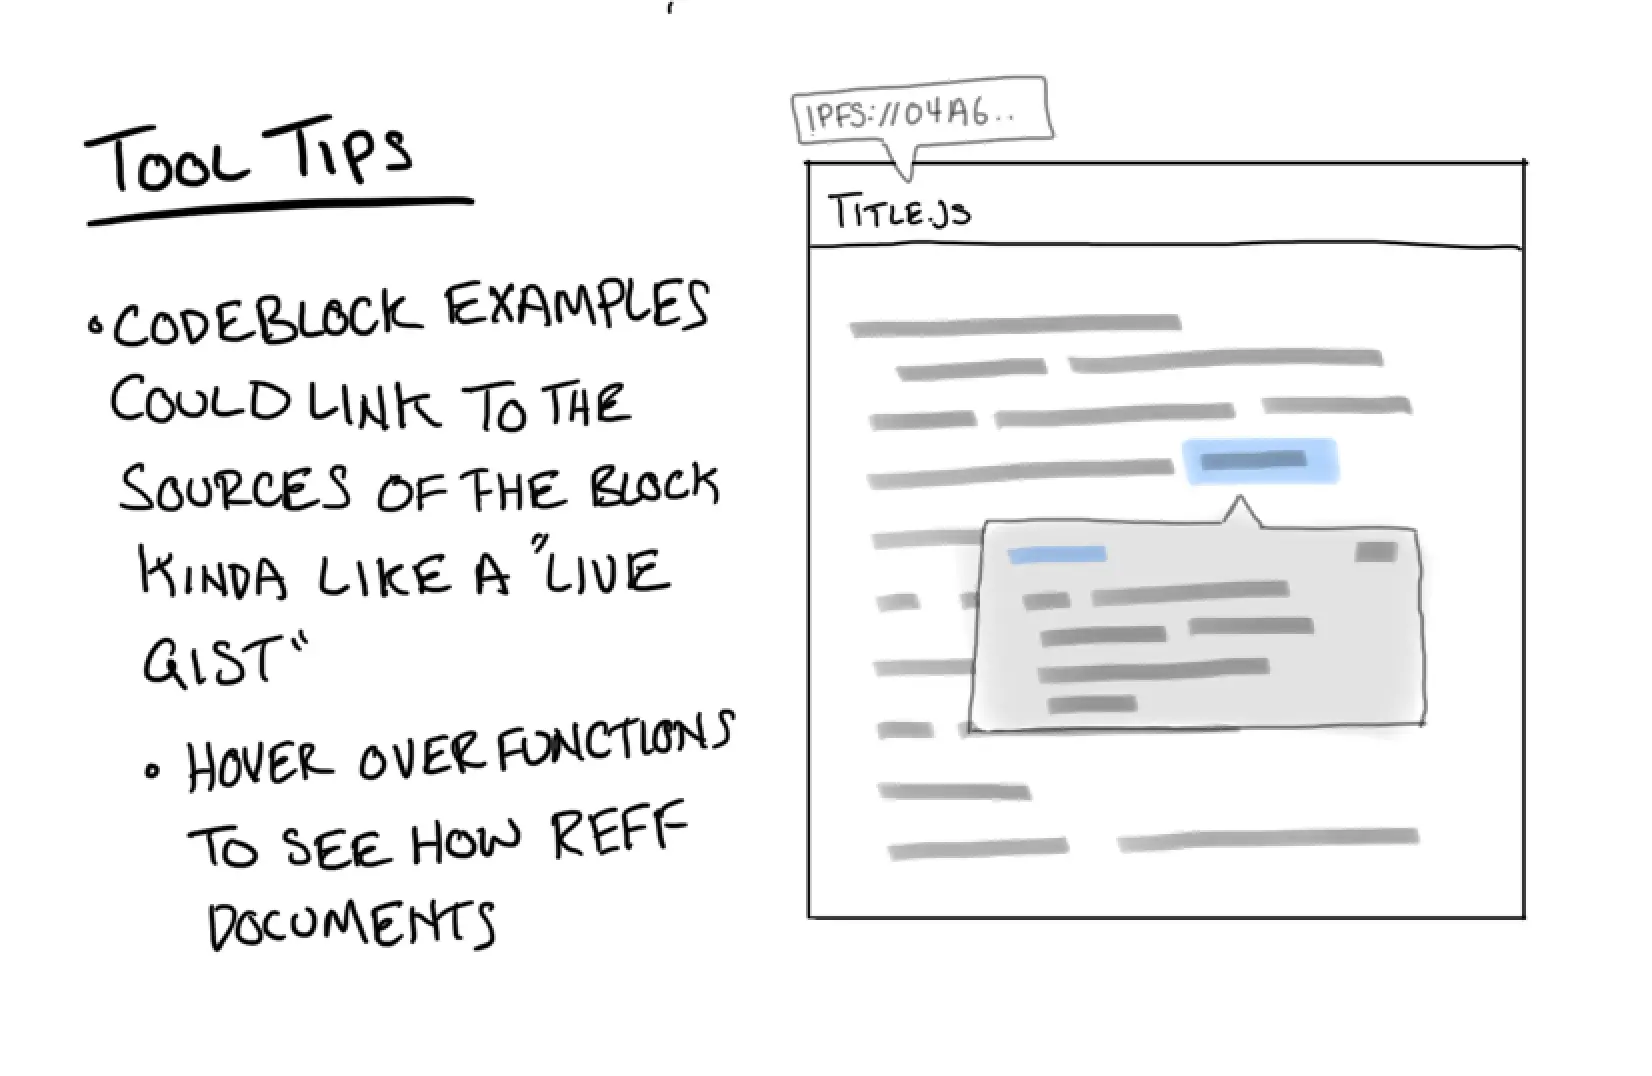 TOOL TIPS
• CODEBLOCK EXAMPLES
COULD LINK TO THE
SOURCES OF THE BLOCK
KINDA LIKE A "LIVE
GIST"
• HOVER OVER FUNCTIONS
TO SEE HOW REFF
DOCUMENTS
IPFS://04A6..
TITLE.JS